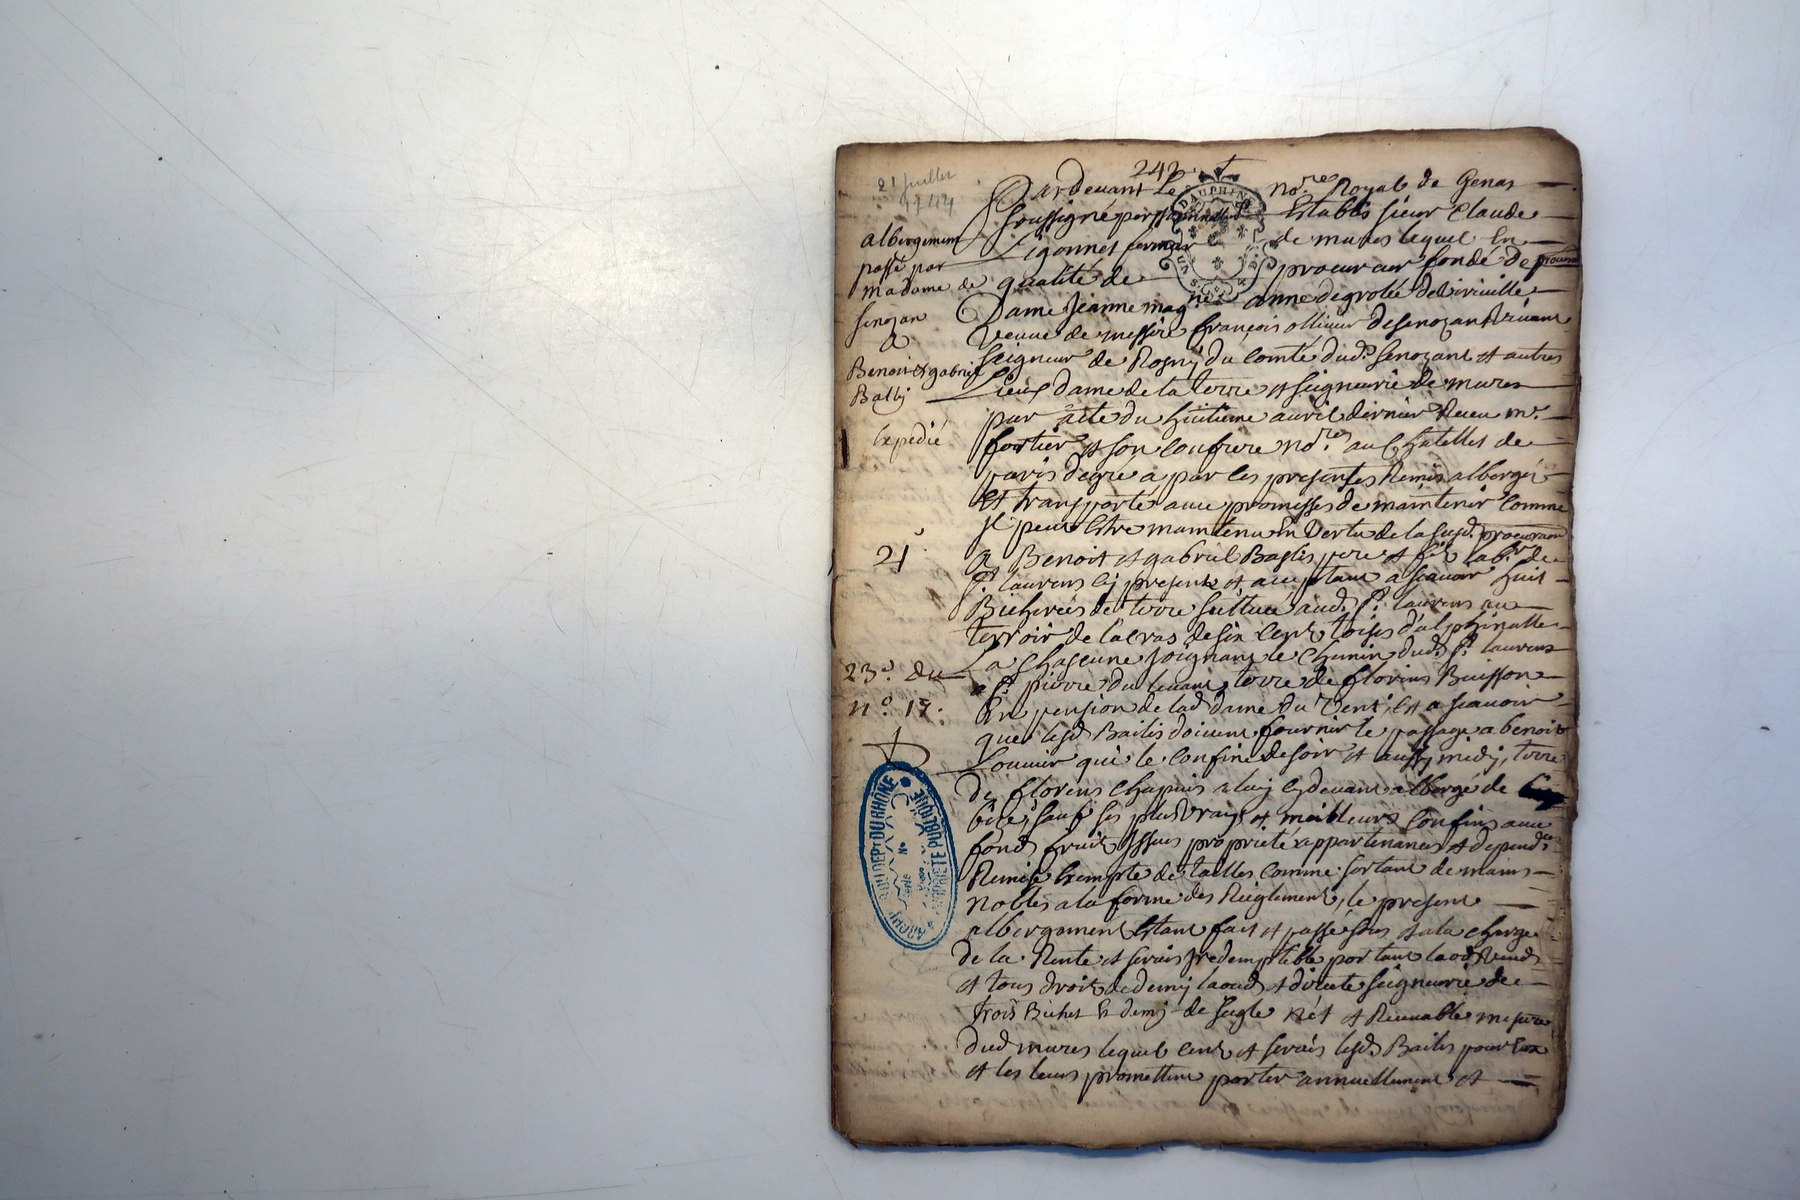 242
21 juillet
1744
albergement
passé par
madame de
senozan
a
Benoit et gabriel
Bailly
Expedié
21
23e du
n° 17.
Pardevant Le nore Royal de Genas
soussigné personnellemt Establis sieur Claude
Ligonnet fermier de mures lequel En
qualité de procureur fondé de procuraon
Dame Jeanne magne anne de grolée de viriville
veuve de messire françois ollivier de senozant vivant
seigneur de Rosny du Comté dud. senozant et autres
Lieux dame de la terre et seigneurie de mures
par acte du huitieme avril dernier Receu mr.
fortier et son confrere nores au Chatellet de
paris de gré a par les presentes Remis albergé
Et transporté avec promesses de maintenir comme
jl peut Estre maintenu En vertu de la susd. procuraon
A Benoit et gabriel Baylis pere et fils labrs de
st. laurens cy presents et acceptant a scavoir huit
Bicherées de terre scittuée aud. st. laurens au
terroir de lacras de six Cent toises d'alphinalle
La Chascune joignant le Chemin dud. st. laurens
a st. pierre du levant, terre de florins Buisson
En pension de lad dame du vent, et a scavoir
que lesd Bailis doivent fournir le passage a benoit
Louvier qui le confine de soir et aussy midy, terre
de florens Chapuis a luy cy devant albergé de
bize, sauf ses plus vrays et meilleurs confins avec
fonds fruits Issues proprietés appartenances et dependces
Remise Exempte de tailles comme sortant de mains
nobles a la forme des Reglement, le present
albergement Etant fait et passé sous et a la charge
de la Rente et servis jrredemptible portant laods vends
et tous droits de demy laods et directe seigneurie de
trois Bichet Et demy de seigle nét et Recevable mesure
dud mures lequel Cent et servis lesd. Bailis pour Eux
et les leurs promettent porter annuellement et
DAUPHINE
ARCHIVES DU DEPT DU RHÔNE
PROPRIÉTÉ PUBLIQUE